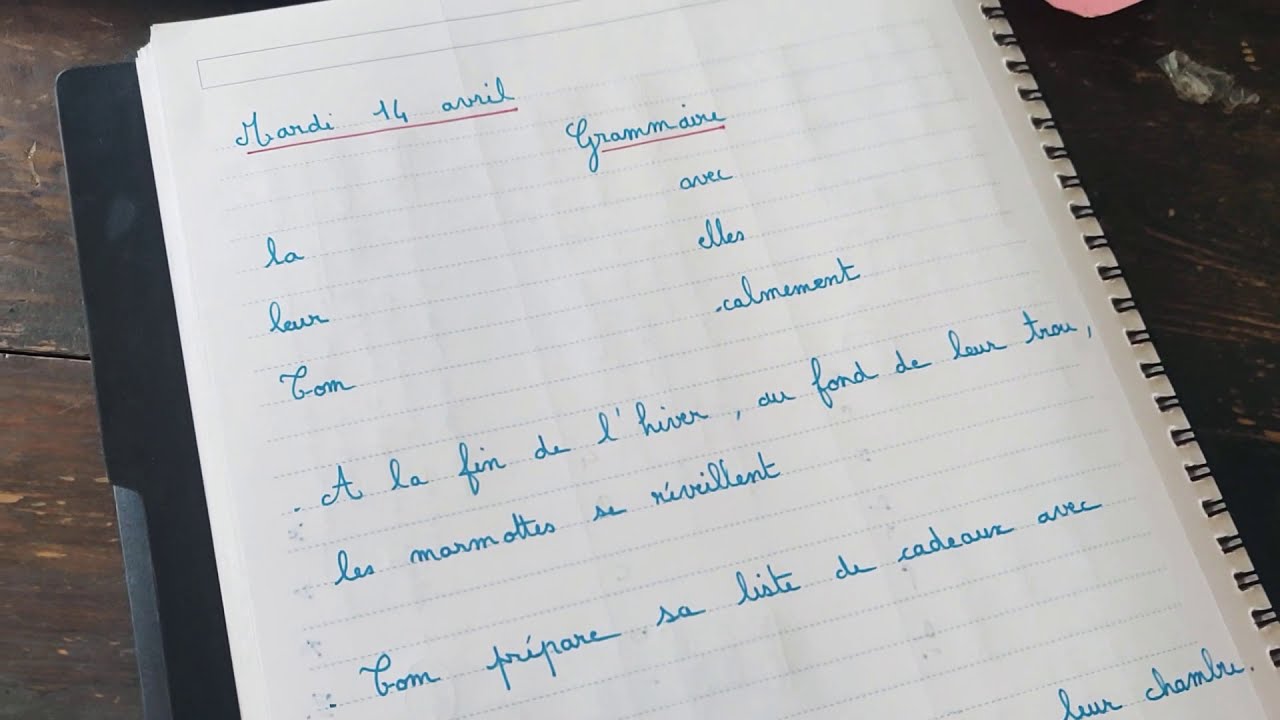 Mardi 14 avril
Grammaire
avec
la
elles
leur
calmement
Tom
. A la fin de l'hiver, au fond de leur trou,
les marmottes se réveillent
. Tom prépare sa liste de cadeaux avec
leur chambre.